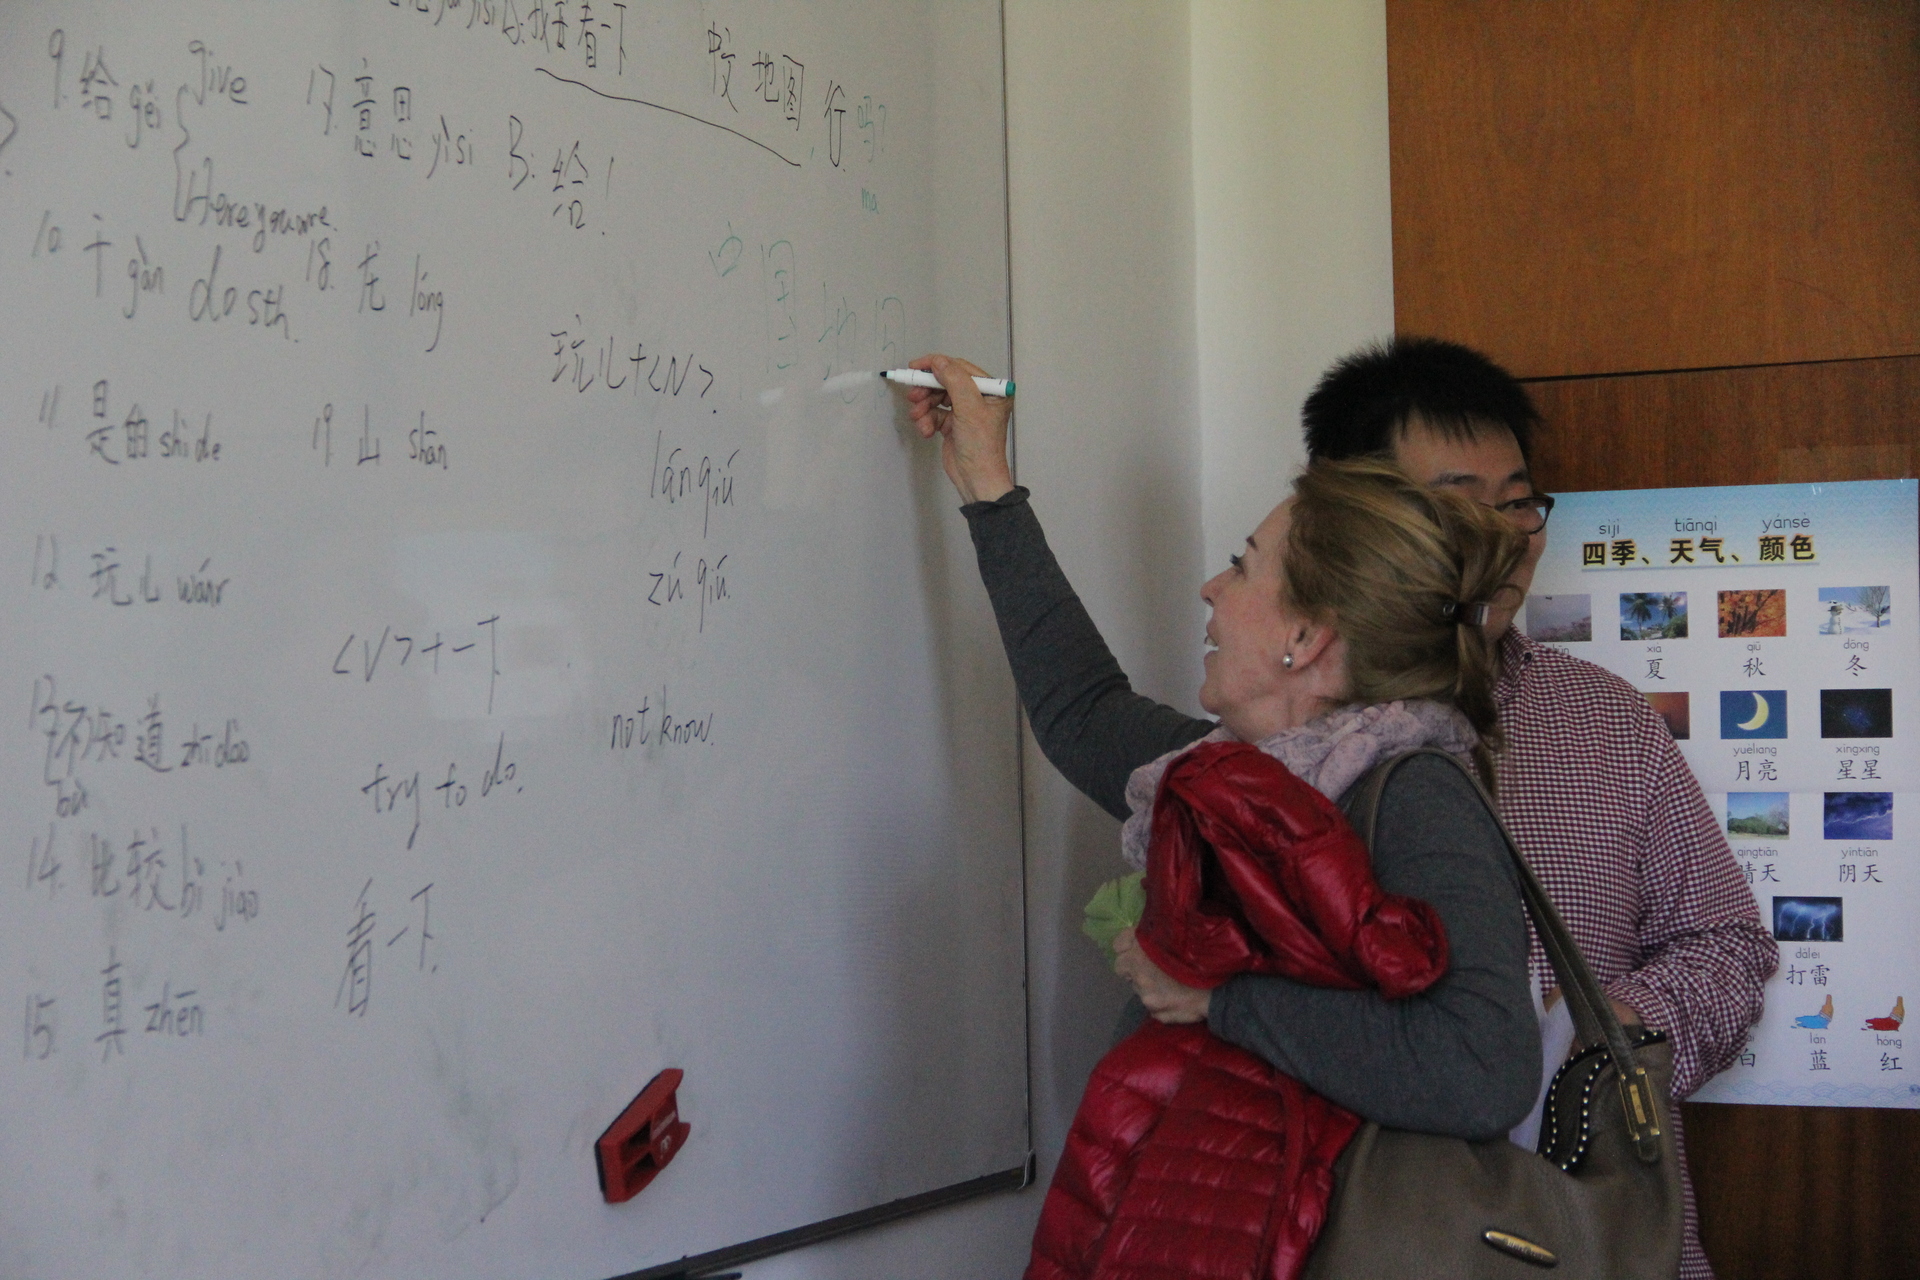 我要看一下
中文地图,行吗?
ma
9. 给 gěi { give
Here you are.
17. 意思 yìsi
B: 给!
10. 干 gàn do sth.
18. 龙 lóng
中国地图
玩儿+<N>.
11. 是的 shì de
19. 山 shān
lánqiú
12. 玩儿 wánr
zúqiú.
<V>+一下
13. 不知道 zhīdào
bù
not know.
try to do.
14. 比较 bǐjiào
看一下.
15. 真 zhēn
sìjì tiānqì yánsè
四季、天气、颜色
xià qiū dōng
夏 秋 冬
yuèliang xīngxing
月亮 星星
qíngtiān yīntiān
晴天 阴天
dǎléi
打雷
lán hóng
白 蓝 红